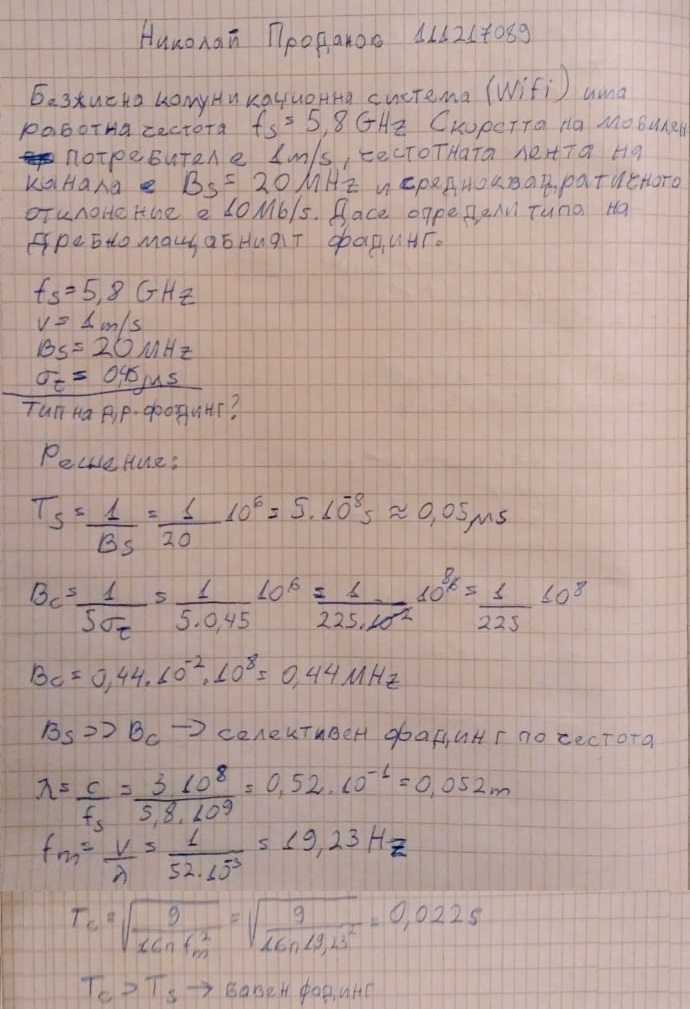 Николай Проданов 111217089
Безжична комуникационна система (Wifi) има
работна честота fs = 5,8 GHz Скоростта на мобилен
потребител е 1m/s, честотната лента на
канала е Bs = 20 MHz и средноквадратичното
отклонение е 10Mb/s. Дасе определи типа на
дребномащабният фадинг.
fs = 5,8 GHz
v = 1 m/s
Bs = 20 MHz
στ = 0,45 μs
Тип на др. фадинг?
Решение:
Ts = 1/Bs = 1/20 10^6 = 5.10^-8 s ≈ 0,05 μs
Bc = 1/5στ = 1/5.0,45 10^6 = 1/225.10^-2 10^8 = 1/225 10^8
Bc = 0,44.10^-2.10^8 = 0,44 MHz
Bs >> Bc → селективен фадинг по честота
λ = c/fs = 3.10^8/5,8.10^9 = 0,52.10^-1 = 0,052 m
fm = v/λ = 1/52.10^-3 = 19,23 Hz
Tc = √(9/16π fm^2) = √(9/16π 19,23^2) = 0,022s
Tc > Ts → бавен фадинг